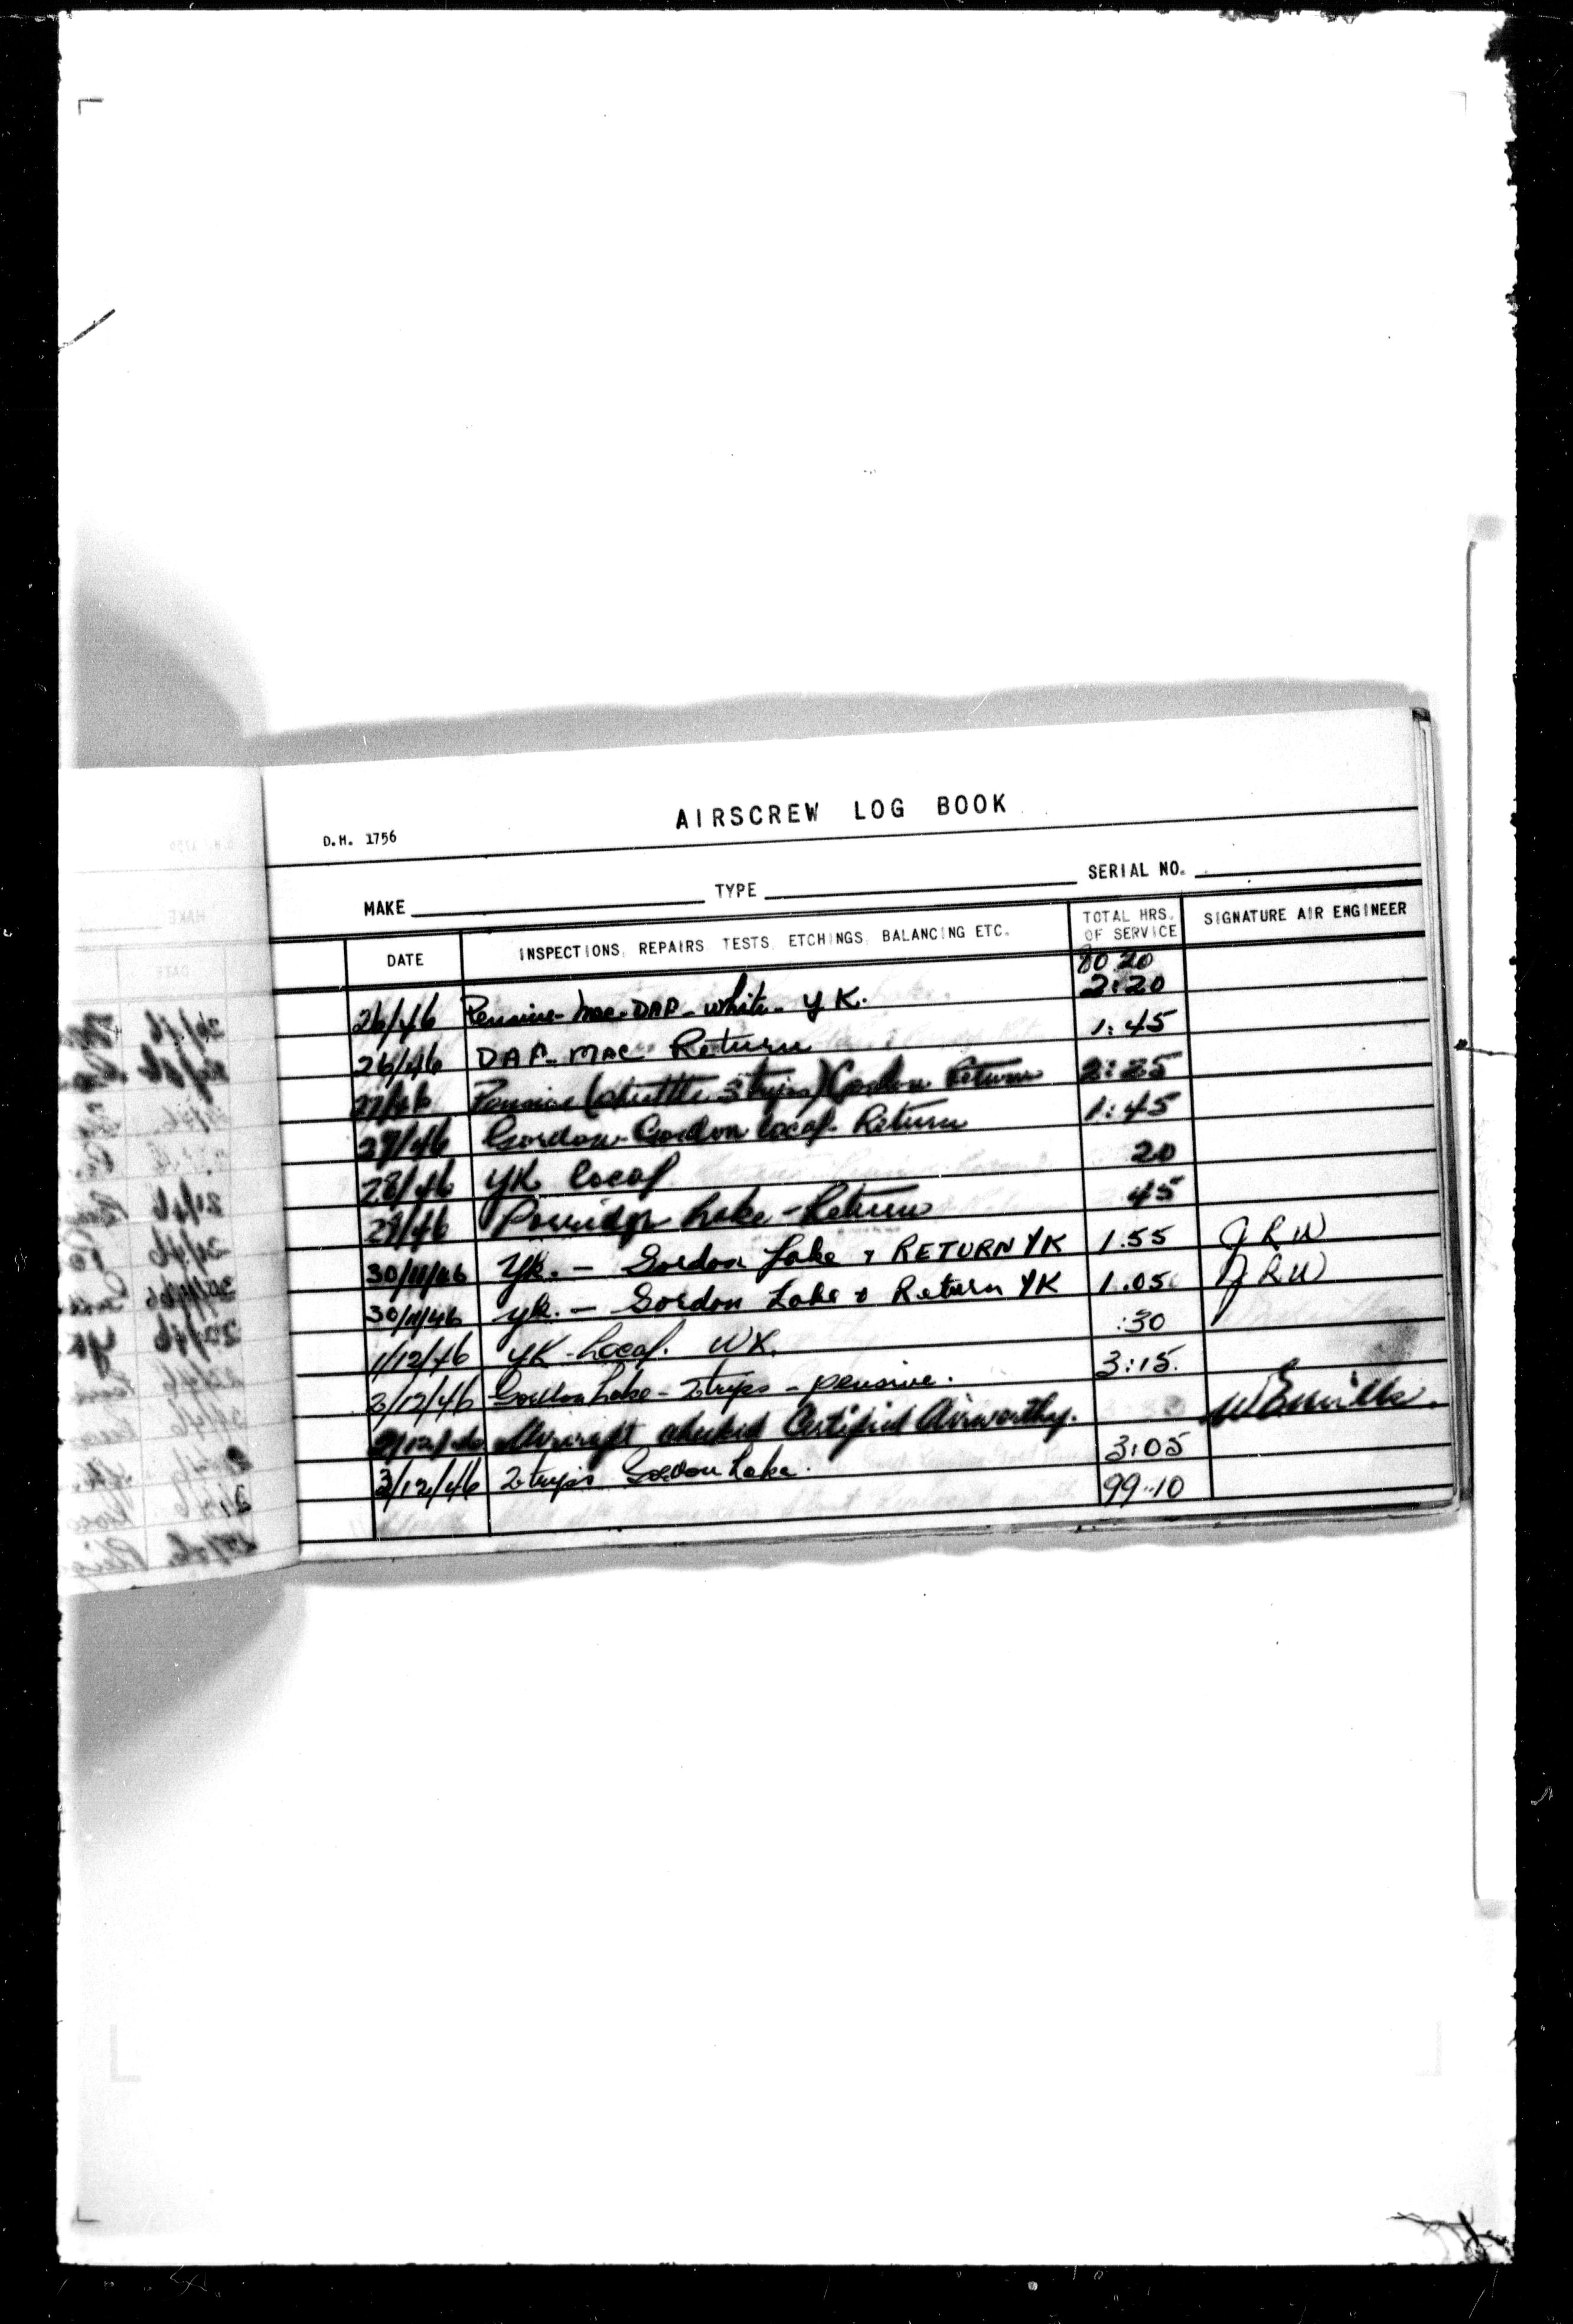 AIRSCREW LOG BOOK
D.H. 1756
MAKE TYPE SERIAL NO.
DATE INSPECTIONS, REPAIRS TESTS, ETCHINGS, BALANCING ETC. TOTAL HRS. OF SERVICE SIGNATURE AIR ENGINEER
80 20
26/46 Pensive- Mac-DAP- White- YK. 2:20
26/46 DAP- MAC Return 1:45
27/46 Pensive (shuttle 3 trips) Gordon Return 2:25
27/46 Gordon- Gordon local- Return 1:45
28/46 YK local 20
29/46 Porridge Lake - Return 45
30/11/46 YK. - Gordon Lake & RETURN YK 1.55 JRW
30/11/46 YK. - Gordon Lake & Return YK 1.05 JRW
1/12/46 YK-Local. WX. :30
2/12/46 Gordon Lake - 2 trips - pensive. 3:15.
2/12/46 Aircraft checked Certified Airworthy.
3/12/46 2 trips Gordon Lake. 3:05
99-10